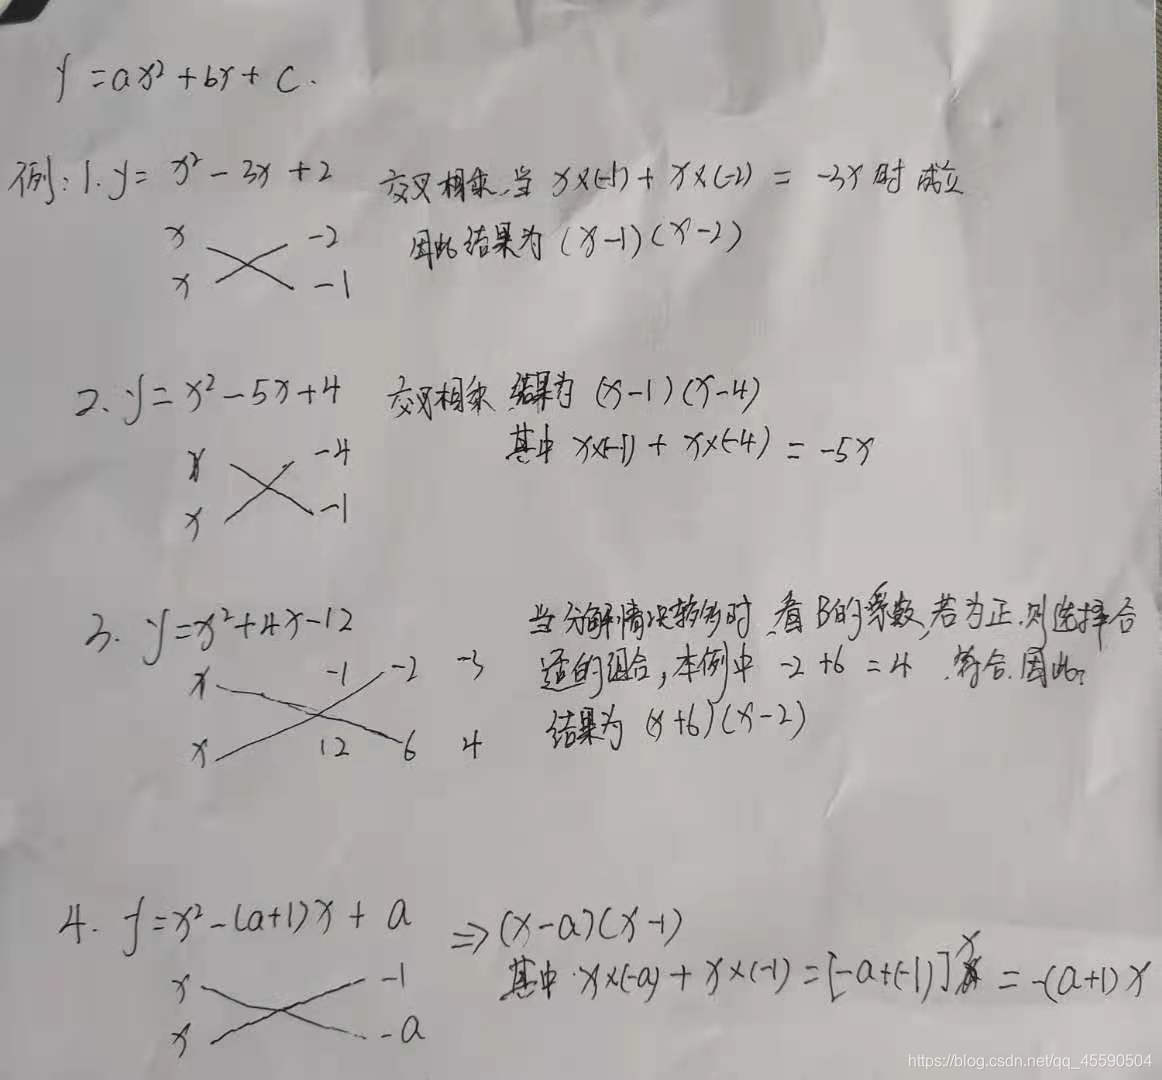 y=ax²+bx+c.
例：1. y= x²-3x+2 交叉相乘,当 x×(-1)+x×(-2) = -3x 时 成立
x -2 因此结果为 (x-1)(x-2)
x -1
2. y=x²-5x+4 交叉相乘 结果为 (x-1)(x-4)
x -4 其中 x×(-1)+x×(-4) = -5x
x -1
3. y=x²+4x-12 当分解情况较多时,看B的系数,若为正,则选择合
x -1 -2 -3 适的组合,本例中 -2+6=4 符合.因此,
x 12 6 4 结果为 (x+6)(x-2)
4. y=x²-(a+1)x+a ⇒(x-a)(x-1)
x -1 其中 x×(-a)+x×(-1)=[-a+(-1)]x = -(a+1)x
x -a
https://blog.csdn.net/qq_45590504